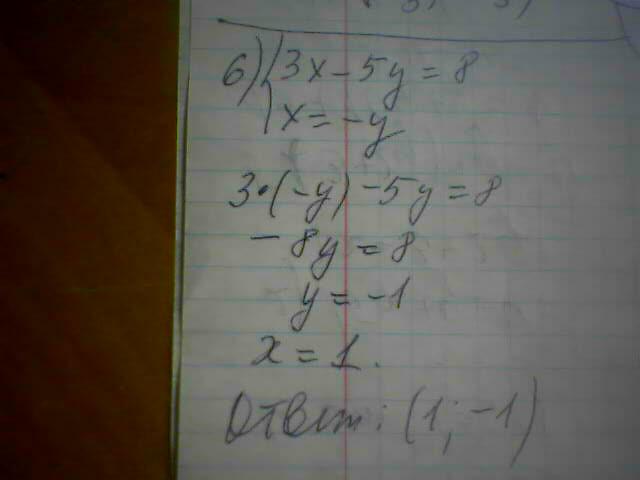 6) { 3x - 5y = 8
x = -y
3·(-y) - 5y = 8
-8y = 8
y = -1
x = 1.
Ответ: (1; -1)